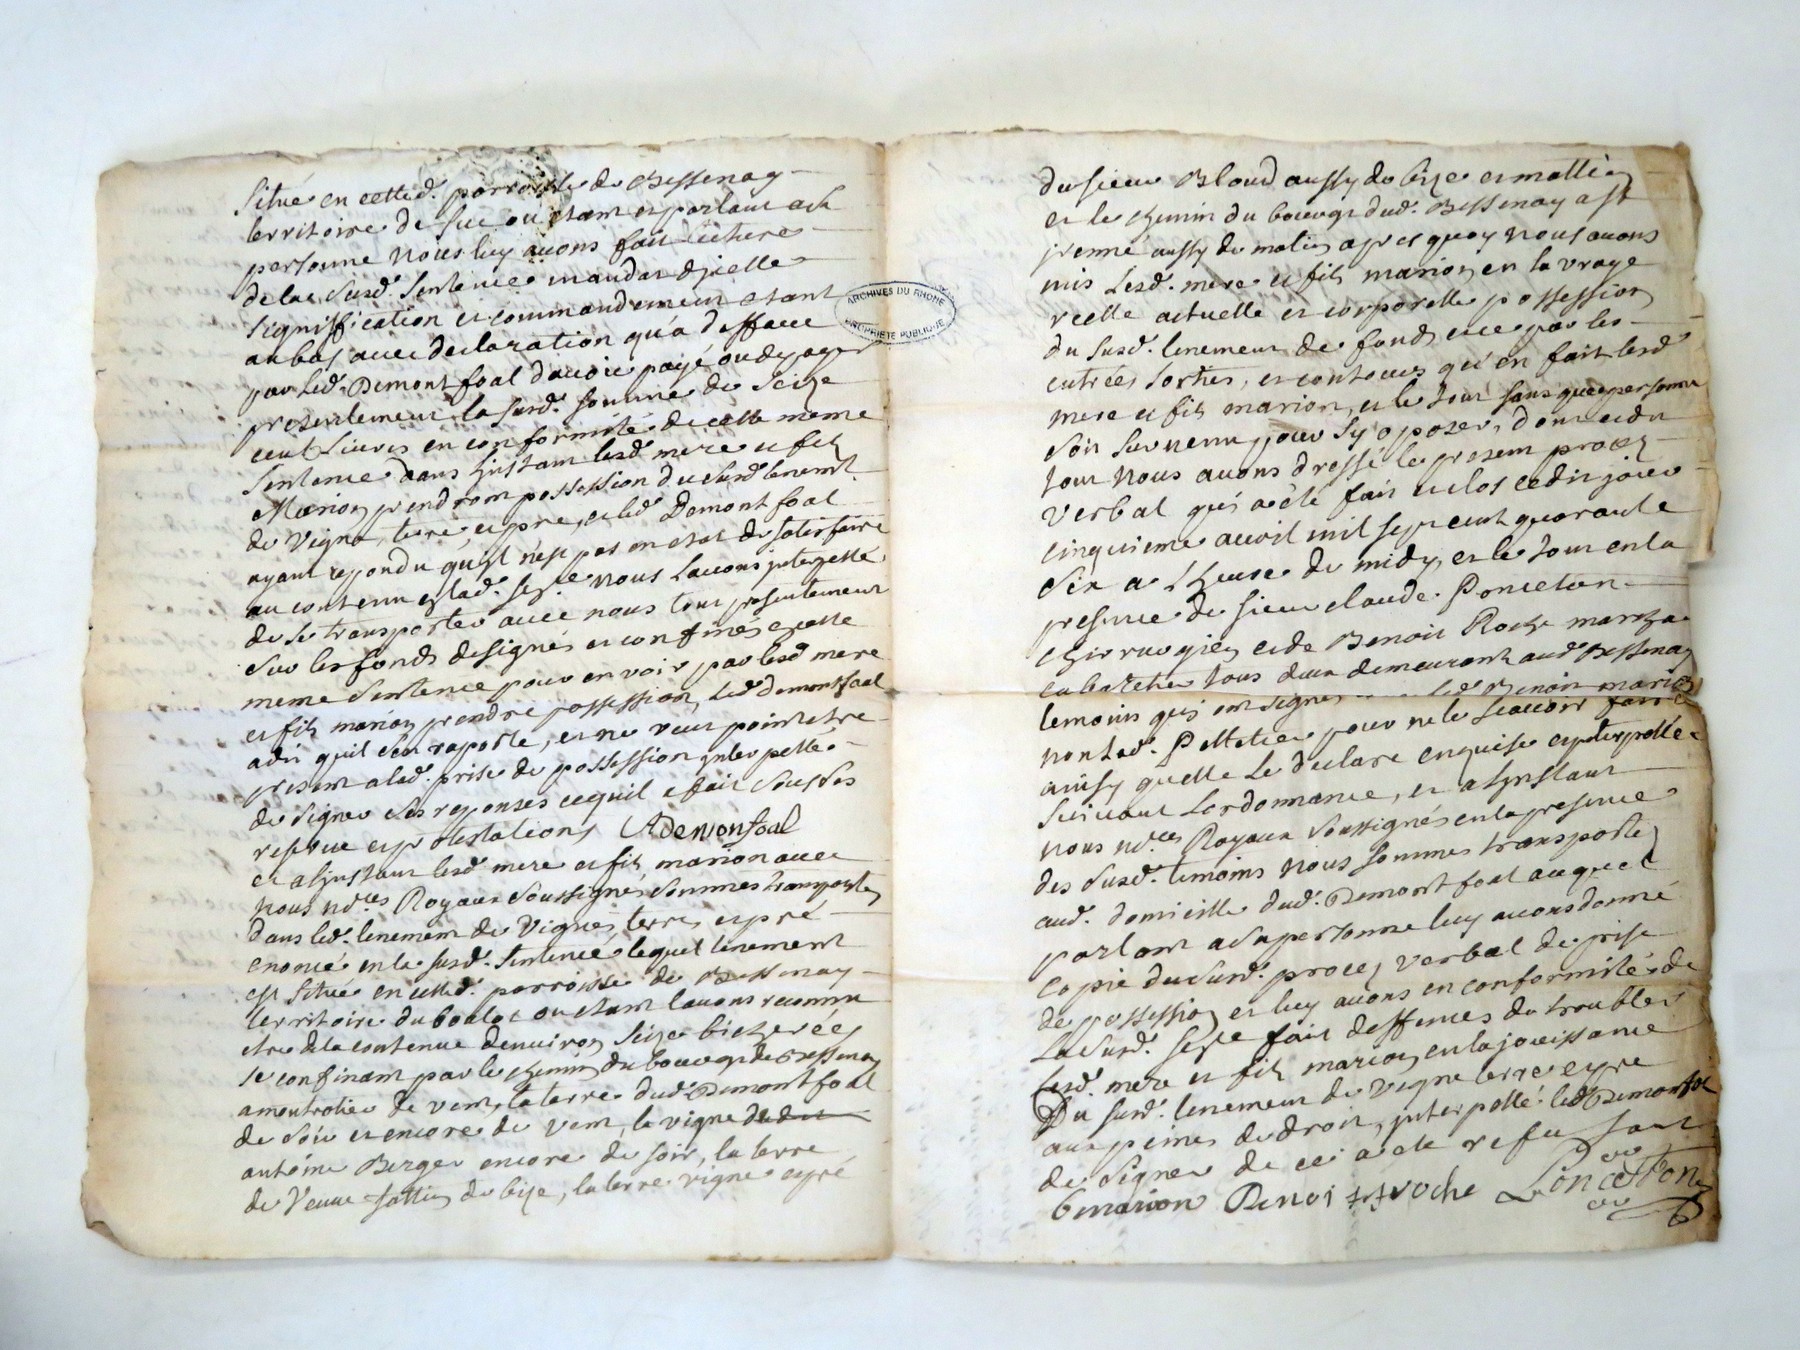 Situé en cetted. parroisse de Bessenay
territoire de suc ou etant et parlant a sa
personne nous luy avons fait lecture
de la susd. Sentence mandat d'jcelle
signiffication et commandement etant
au bas avec declaration qu'a deffaut
par led. Demontfoal d'avoir payé ou de payer
presentement la susd. somme de seize
cent livres en conformité de cette meme
Sentence dans l'jnstant lesd. mere et fils
Marion prendront possession dususd. tenemt.
de vigne, terre, et pre, et led. Demontfoal
ayant repondu qu'jl n'est pas en etat de satisfaire
au contenu en lad. sen.ce nous l'avons jnterpellé
de se transporter avec nous tout presentement
sur les fonds designés et confinés en cette
meme Sentence pour en voir par lesd. mere
et fils marion prendre possession, led. demontfoal
a dit qu'il s'en raporte, et ne veut point etre
present a lad. prise de possession jnterpellé
de signer ses reponses ce qu'il a fait sous ses
reserve et protestations ADemonfoal
et a l'jnstant lesd. mere et fils marion avec
nous no.res Royaux soussignés sommes transportés
dans led. tenement de vignes, terre, et pré
enoncé en la susd. Sentence lequel tenement
est situé en cetted. parroisse de Bessenay
territoire du boulot ou etant l'avons reconnu
etre de la contenue d'environ seize bicherées
se confinant par le chemin du bourg de Bessenay
a montrotier de vent, la terre dud. Demontfoal
de soir et encore de vent, la vigne de du
antoine Berger encore de soir, la terre
de Veuve fattin de bize, la terre vigne et pré
du sieur Bloud aussy de bize et matin
et le chemin du bourg dud. Bessenay a st
jrenné aussy de matin apres quoy nous avons
mis lesd. mere et fils marion en la vraye
reelle actuelle et corporelle possession
du susd. tenement de fonds et ce par les
entrées sorties, et contours qu'en fait lesd.
mere et fils marion, et le tout sans que personne
soit survenu pour s'y oposer, dont et du
tout nous avons dressé le present procez
verbal qui a été fait et clos cedit jour
cinquieme avril mil sept cent quarante
six a l'heure de midy, et le tout en la
presence de sieur claude Ponceton
chirurgien et de Benoit Roche marchand
cabaretier tous deux demeurant aud. Bessenay
temoins qui ont signé led. Benoit marion
non lad. Pelletier pour ne le scavoir faire
ainsy qu'elle le declare enquise et jnterpellée
suivant l'ordonnance, et a l'jnstant
nous no.res Royaux soussignés en la presence
des susd. temoins nous sommes transportés
aud. domicille dud. Demontfoal auquel
parlant a sa personne luy avons donné
copie dususd. procez verbal de prise
de possession et luy avons en conformité de
la susd. sen.ce fait deffences de troubler
lesd. mere et fils marion en la jouissance
Du susd. tenement de vigne terre et pre
aux peines de droit, jnterpellé led. Demontfoal
de signer de ce acte refusant
b marion Benoi roche Ponceton
ARCHIVES DU RHONE
PROPRIÉTÉ PUBLIQUE